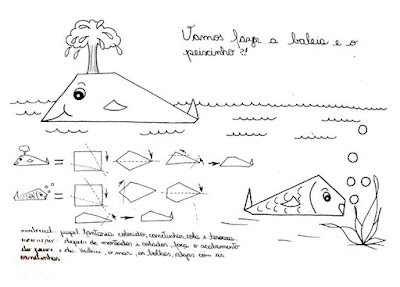 Vamos fazer a baleia e o
peixinho ?!
material: papel fantasia colorido, canetinhas, cola e tesoura.
depois de montados e colados, faça o acabamento
da baleia, o mar, as bolhas, algas com as
canetinhas.